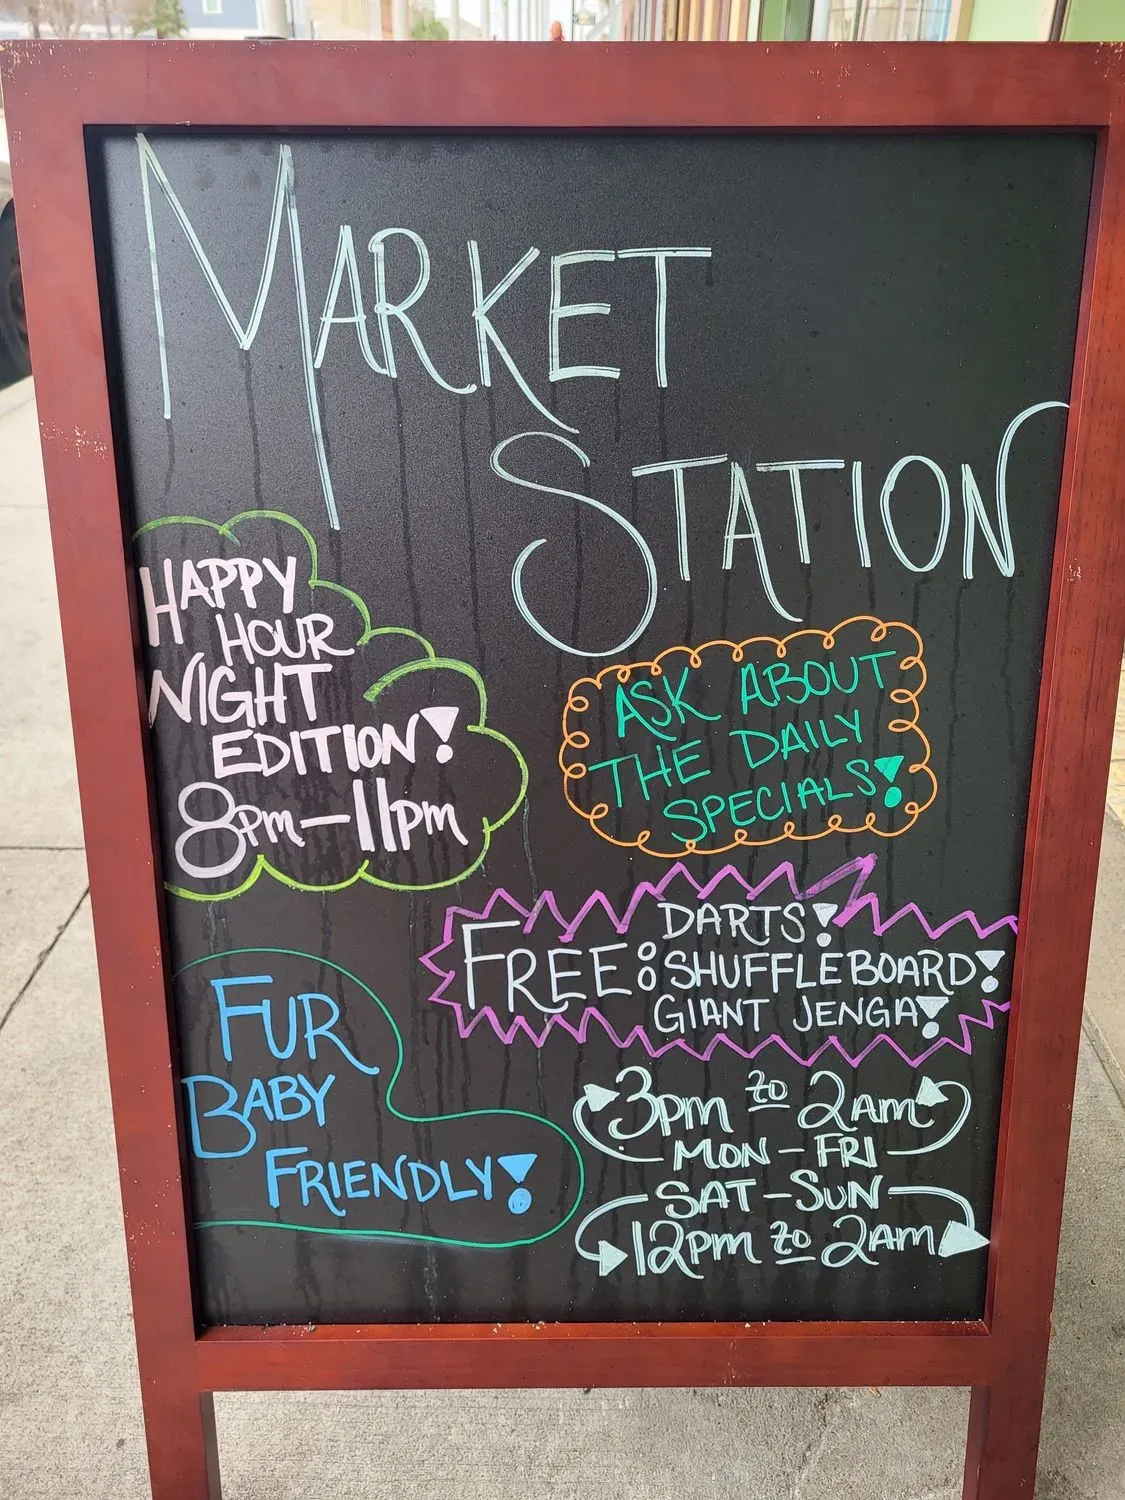 MARKET
STATION
HAPPY
HOUR
NIGHT
EDITION!
8pm-11pm
ASK ABOUT
THE DAILY
SPECIALS!
FREE: DARTS!
SHUFFLEBOARD!
GIANT JENGA!
FUR
BABY
FRIENDLY!
3pm to 2am
MON-FRI
SAT-SUN
12pm to 2am